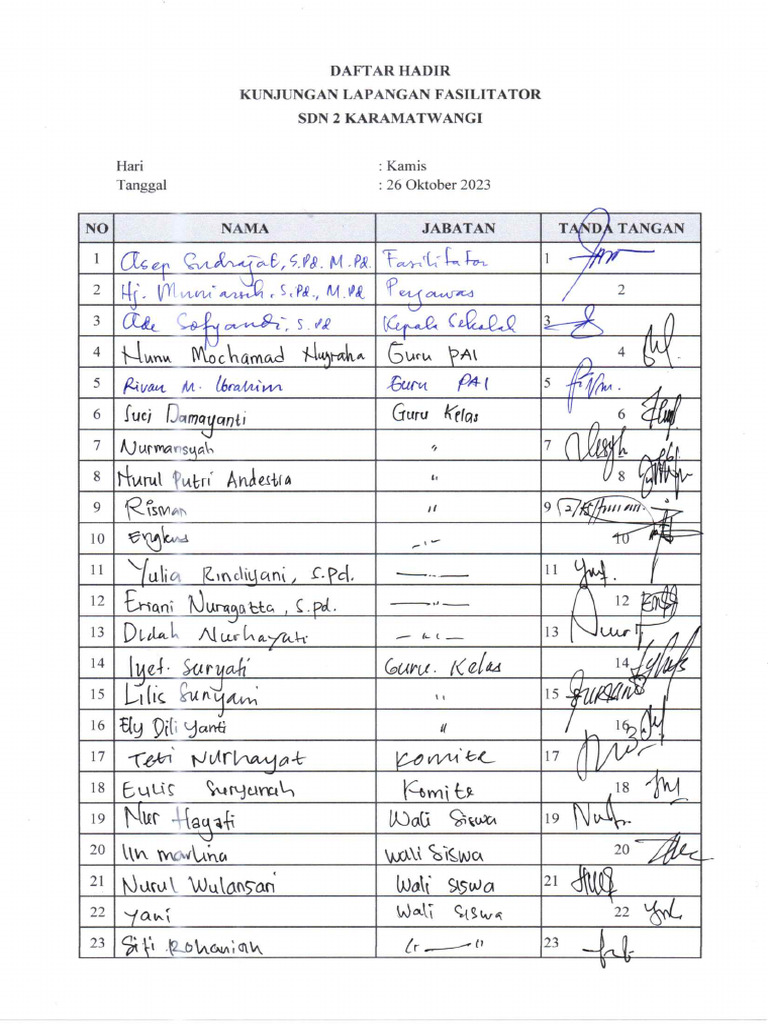 DAFTAR HADIR
KUNJUNGAN LAPANGAN FASILITATOR
SDN 2 KARAMATWANGI
Hari : Kamis
Tanggal : 26 Oktober 2023
NO NAMA JABATAN TANDA TANGAN
1 Asep Sudrajat, S.Pd. M.Pd. Fasilitator 1
2 Hj. S.Pd., M.Pd Pengawas 2
3 Ade Sofyandi, S.Pd Kepala Sekolah 3
4 Nunu Mochamad Nugraha Guru PAI 4
5 Rivan M. Ibrahim Guru PAI 5
6 Suci Damayanti Guru Kelas 6
7 Nurmansyah " 7
8 Nurul Putri Andestia " 8
9 Risman " 9
10 Engkus —"— 10
11 Yulia Rindiyani, S.Pd. —"— 11
12 Eriani Nuragatta, S.pd. —"— 12
13 Didah Nurhayati —"— 13
14 Iyet. Suryati Guru. Kelas 14
15 Lilis Suryani " 15
16 Ely Dili Yanti " 16
17 Teti Nurhayat Komite 17
18 Eulis Suryanah Komite 18
19 Nur Hayati Wali Siswa 19
20 Iin marlina wali siswa 20
21 Nurul Wulansari Wali siswa 21
22 Yani Wali siswa 22
23 Siti Rohaniah "—" 23